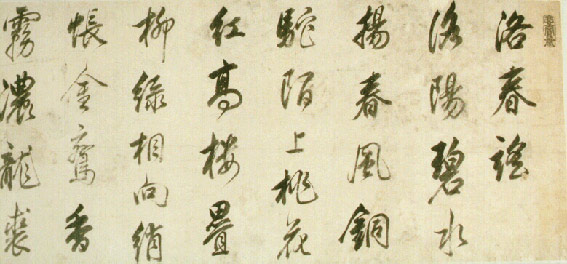 洛春謠
洛陽碧水
揚春風銅
駝陌上桃花
紅高樓疊
柳綠相向綃
帳金鸞香
霧濃龍裘